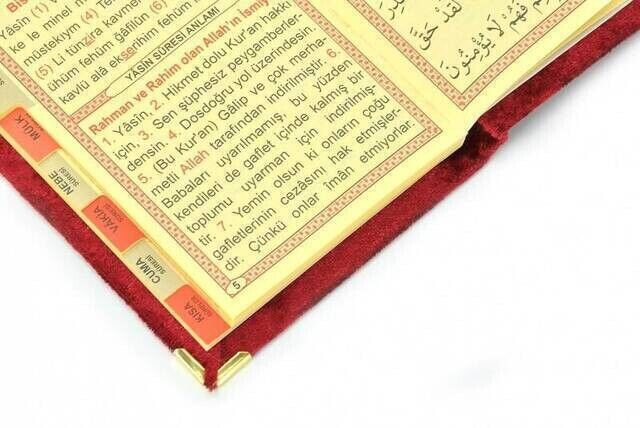 Yâsîn (1) Vel
ke le minel m
müstekıym (4) Ten
(5) Li tünzira kavmen
ühüm fehüm gâfilûn (6)
kavlü alâ ekserihim fehüm
YÂSÎN SÛRESİ ANLAMI
Rahman ve Rahim olan Allah'ın İsmiy
1. Yâsîn, 2. Hikmet dolu Kur'an hakkı
için, 3. Sen şüphesiz peygamberler-
densin. 4. Dosdoğru yol üzerindesin.
5. (Bu Kur'an) Gâlip ve çok merha-
metli Allah tarafından indirilmiştir. 6.
Babaları uyarılmamış, bu yüzden
kendileri de gaflet içinde kalmış bir
toplumu uyarman için indirilmiş-
tir. 7. Yemin olsun ki onların çoğu
gafletlerinin cezasını hak etmişler-
dir. Çünkü onlar îmân etmiyorlar.
5
لَقَدْ حَقَّ
فَهُمْ لَا يُؤْمِنُونَ
MÜLK
NEBE
SÛRESİ
VÂKIA
SÛRESİ
CUMA
SÛRESİ
KISA
SÛRELER